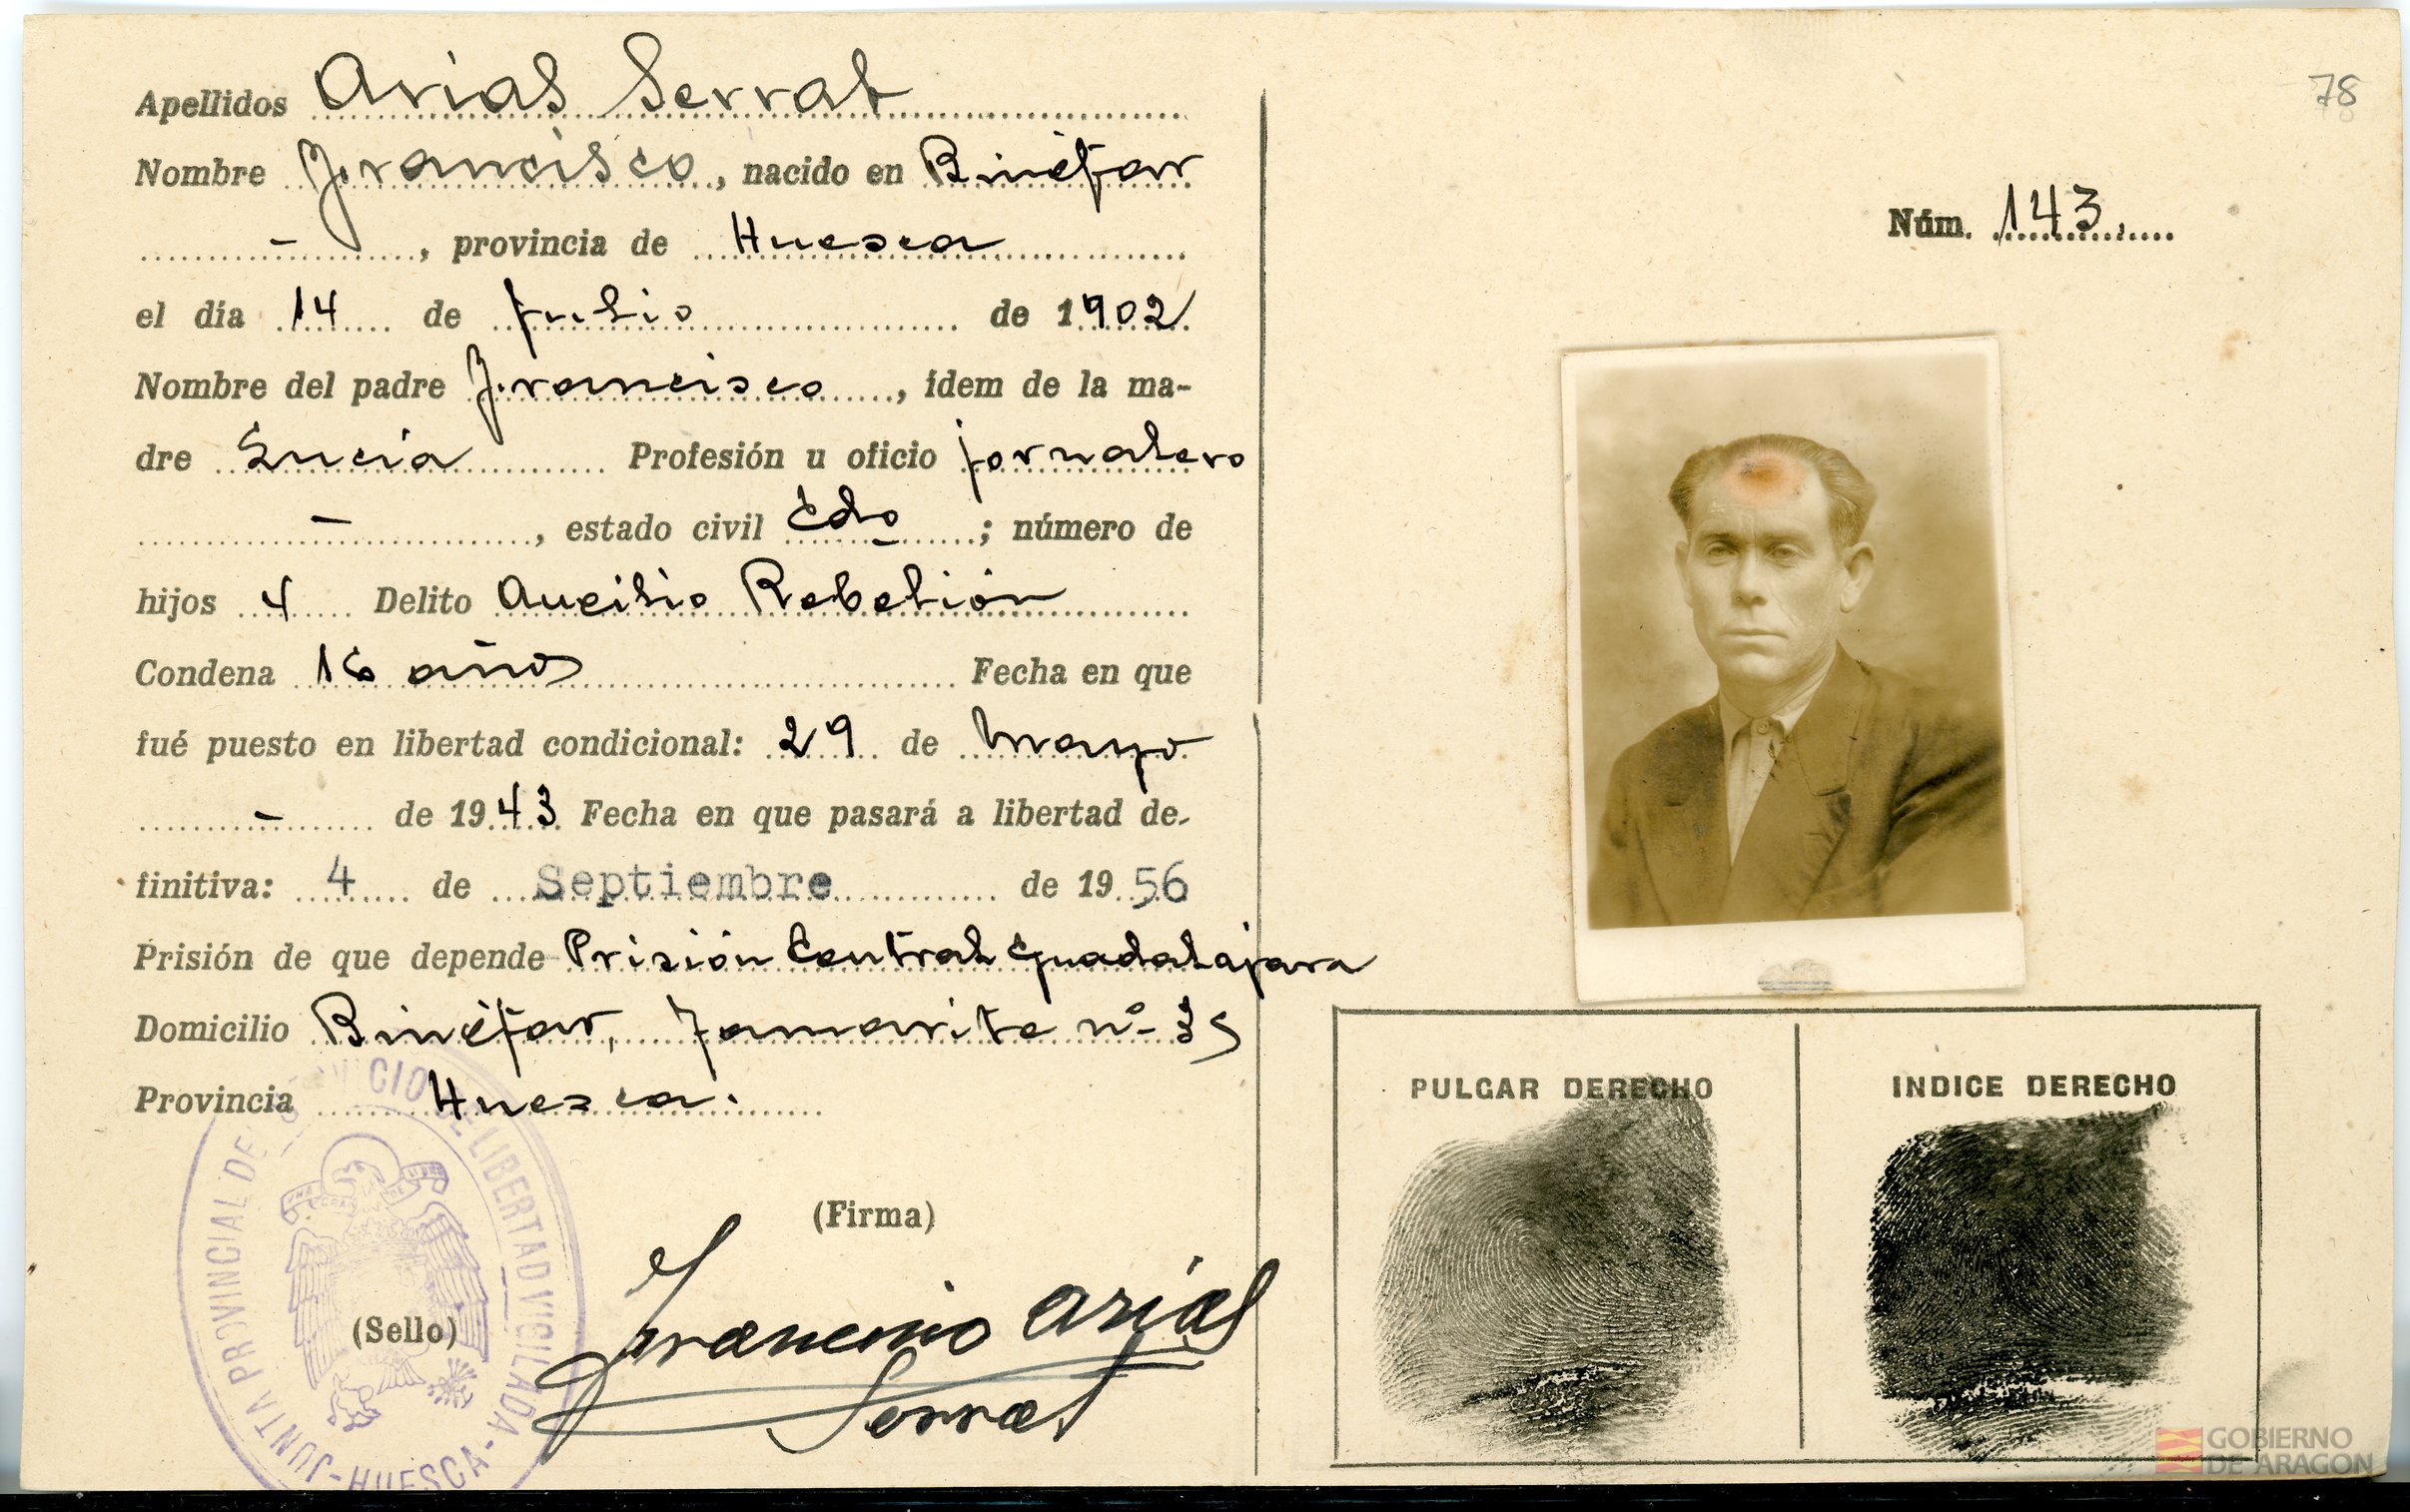 78
Apellidos Arias Serrat
Nombre Francisco, nacido en Binéfar
-, provincia de Huesca
el día 14 de julio de 1902
Nombre del padre Francisco, ídem de la ma-
dre Lucía Profesión u oficio jornalero
-, estado civil Cdo; número de
hijos 4 Delito Aucilio Rebelión
Condena 16 años Fecha en que
fué puesto en libertad condicional: 29 de Mayo
- de 1943 Fecha en que pasará a libertad de-
finitiva: 4 de Septiembre de 1956
Prisión de que depende Prisión Central Guadalajara
Domicilio Binéfar, Tamarite nº 35
Provincia Huesca.
(Firma)
Francisco Arias
Serrat
(Sello)
JUNTA PROVINCIAL DEL SERVICIO DE LIBERTAD VIGILADA - HUESCA -
Núm. 143
PULGAR DERECHO
INDICE DERECHO
GOBIERNO
DE ARAGON